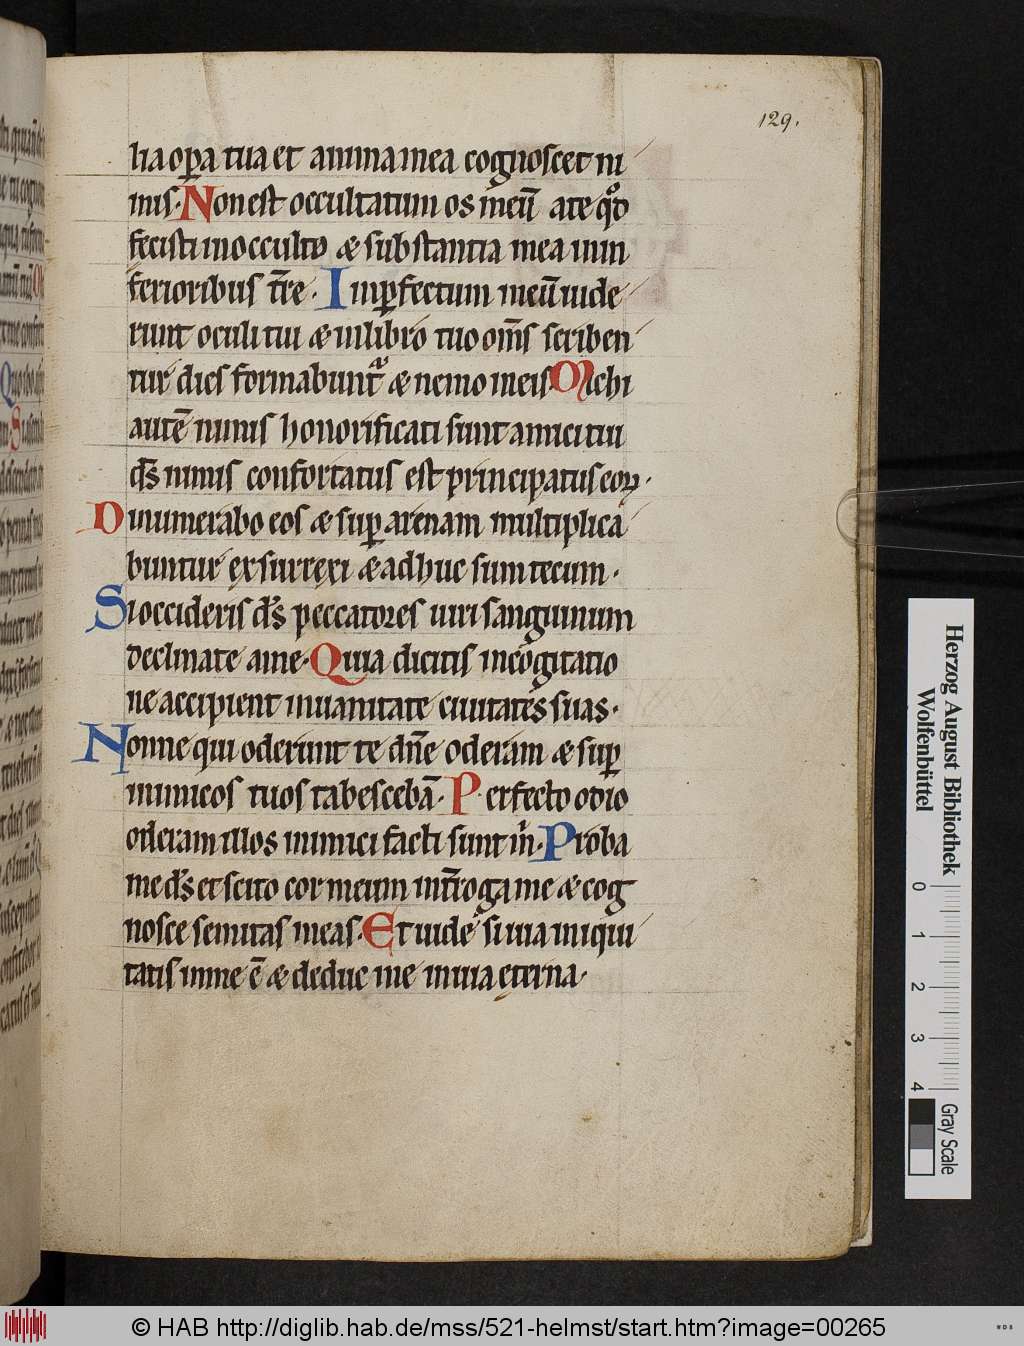 129.
lia op̲a tua et anima mea cognoscet ni
mis. Non est occultatum os meū a te qͦd
fecisti in occulto & substantia mea in in
ferioribus tr̄e. Inp̲fectum meū uide
runt oculi tui & in libro tuo om̄s scriben
tur dies formabunt᷑ & nemo in eis. Michi
autē nimis honorificati sunt amici tui
ds̄ nimis confortatus est principatus eoꝝ.
Dinumerabo eos & sup̲ arenam multiplica
buntur exsurrexi & adhuc sum tecum.
Si occideris ds̄ peccatores uiri sanguinum
declinate a me. Quia dicitis in cogitatio
ne accipient in uanitate ciuitates suas.
Nonne qui oderunt te dn̄e oderam & sup̲
inimicos tuos tabescebā. Perfecto odio
oderam illos inimici facti sunt m̄. Proba
me ds̄ et scito cor meum int̄roga me & cog
nosce semitas meas. Et uide si uia iniqui
tatis in me ē & deduc me in uia ęterna.
Herzog August Bibliothek
Wolfenbüttel
0 1 2 3 4
Gray Scale
© HAB http://diglib.hab.de/mss/521-helmst/start.htm?image=00265